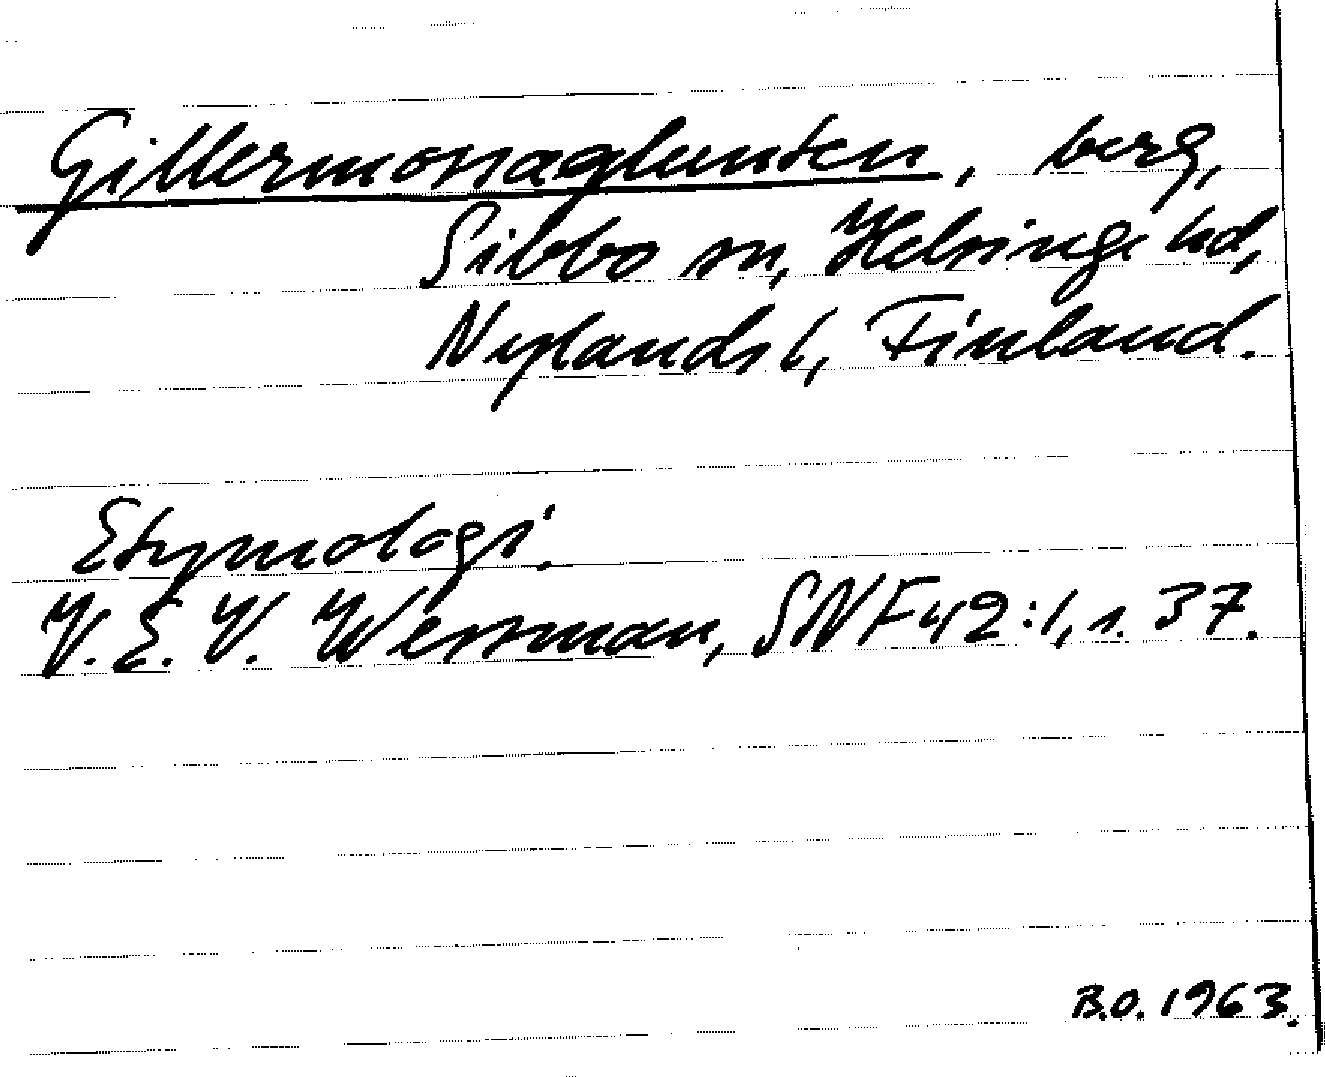 Gillermossaglunten, berg,
Sibbo sn, Helsinge hd,
Nylands l, Finland.
Etymologi.
V. E. V. Wessman, SNF 42:1, s. 37.
B.O. 1963.